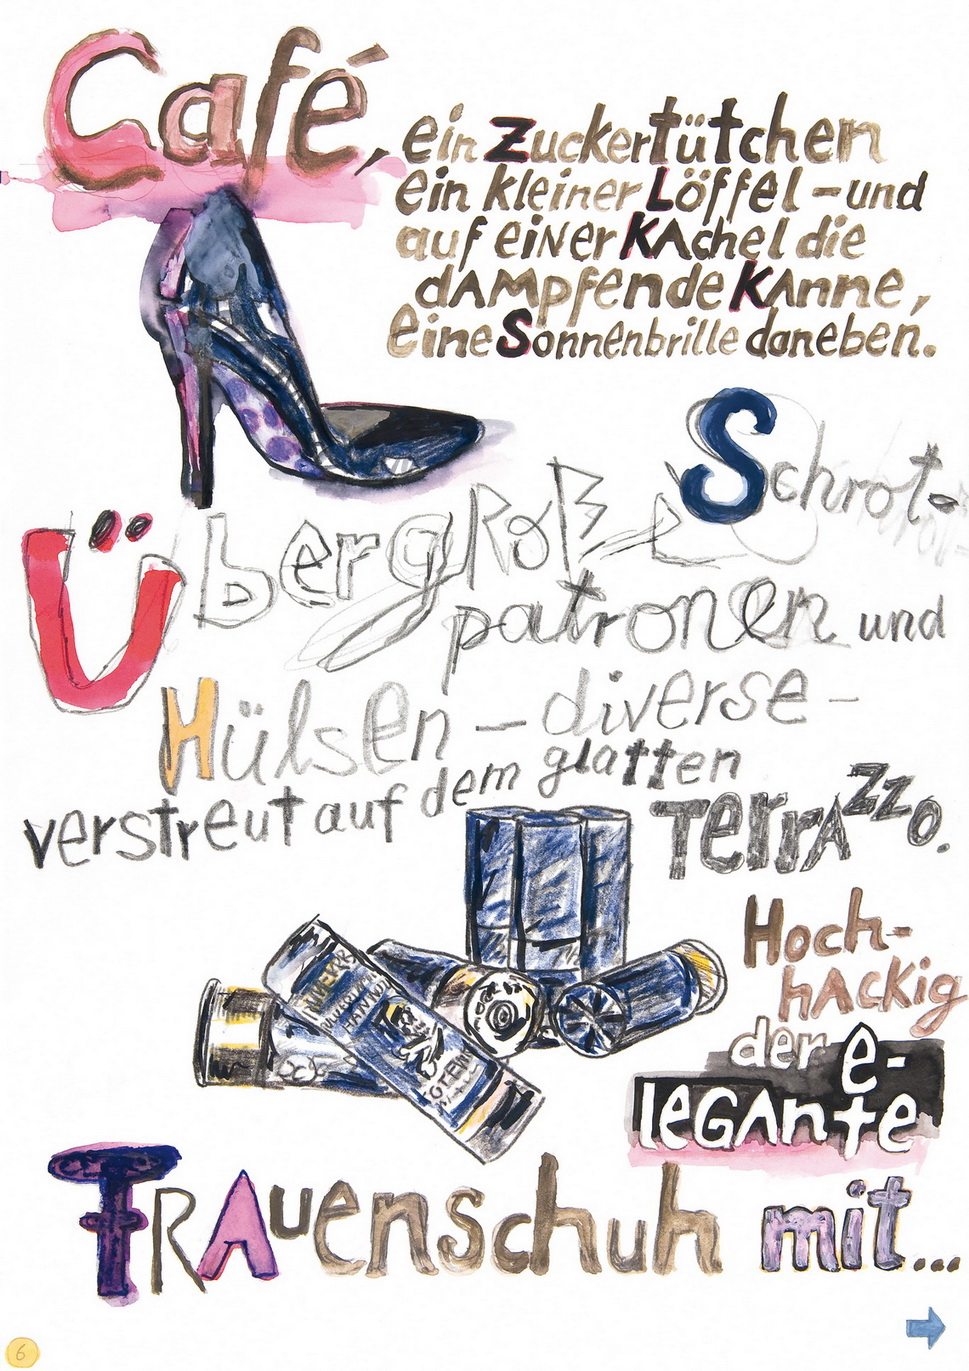 Café, ein Zuckertütchen
ein kleiner Löffel – und
auf einer KAchel die
dAMpfende KAnne,
eine Sonnenbrille daneben.
Übergroße Schrot-
patronen und
Hülsen – diverse –
verstreut auf dem glatten
TerrAzzo.
Hoch-
hAckig
der e-
leGAnte
FRAuenschuh mit...
6